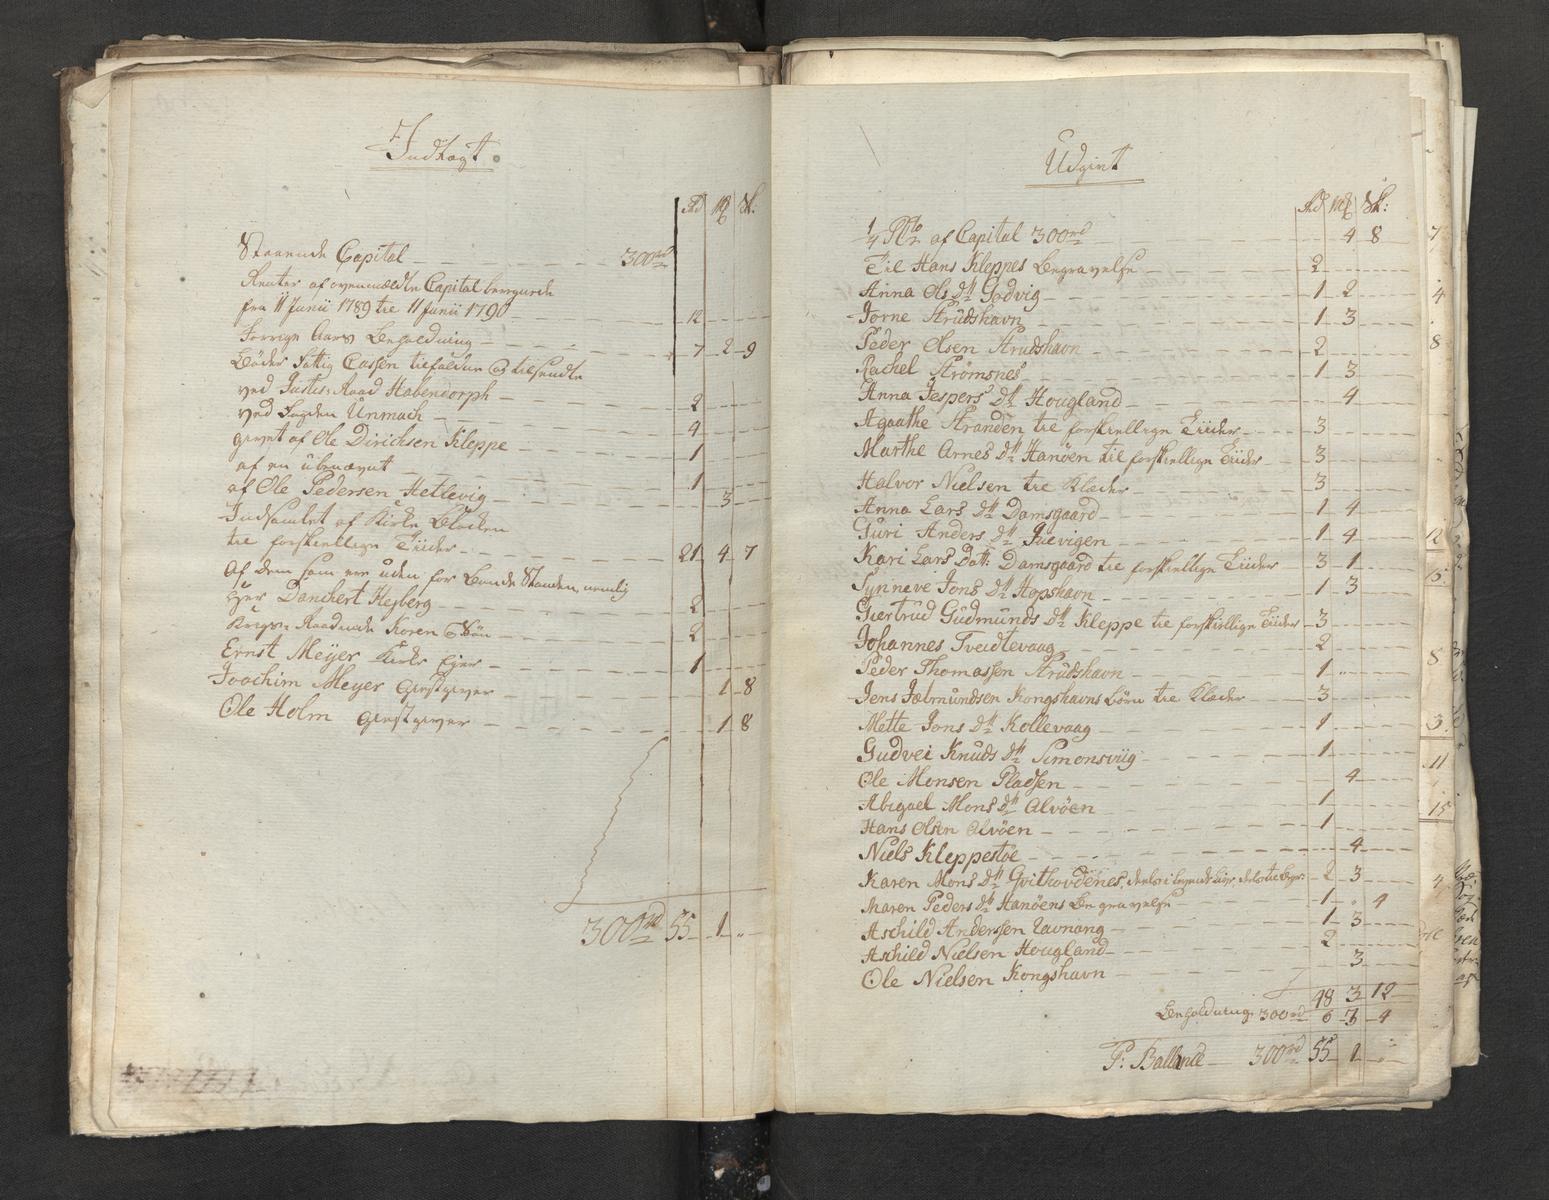 Indtægt.
Rd mk Sk:
Staaende Capital 300rd
Renter af ovenmældte Capital beregnede
fra 11 Junii 1789 til 11 Junii 1790 12
Forrige Aars Beholdning 7 2 9
Bøder Fattig Cassen tilfalden og tilsendte
ved Justis: Raad Habendorph 2
ved Fogden Unmach 4
givet af Ole Dirichsen Kleppe 1
af en ubenævnt 1
af Ole Pedersen Hetlevig 3
Indsamlet af Kirke Blocken
til forskiellige Tiider 21 4 7
Af dem som ere uden for Bonde Standen, nemlig
Herr Danchert Hejberg 2
Krigs: Raadinde Koren og Søn 2
Ernst Meÿer Kirke Ejer 1
Joachim Meyer Giestgiver 1 8
Ole Holm Giestgiver 1 8
300rd 55 1 "
Udgivt
Rd mk Sk:
1/4 PCto af Capital 300rd 4 8
Til Hans Kleppes Begravelse 2
Anna Ols Dtr Godvig 1 2
Jorne Strudshavn 1 3
Peder Olsen Strudshavn 2
Rachel Strømsnes 1 3
Anna Jespers Dtr Hougland 4
Agaathe Stranden til forskiellige Tiider 3
Marthe Arnes Dtr Hanøen til forskiellige Tiider 3
Halvor Nielsen til Klæder 3
Anna Lars Dtr Damsgaard 1 4
Guri Anders Dtr 1 4
Kari Lars Datt: Damsgaard til forskiellige Tiider 3 1
Synneve Jons Dtr Hopshavn 1 3
Giertrud Gudmunds Dtr Kleppe til forskiellige Tiider 3
Johannes Tveidtevaag 2
Peder Thomassen Strudshavn 1
Jens Kongshavns Børn til Klæder 3
Mette Jons Dtr Kollevaag 1
Gudvei Knuds Dtr Simonsviig 1
Ole Monsen Pladsen 4
Abigael Mons Dtr Alvöen 1
Hans Olsen Alvöen 1
Niels Kleppestøe 4
Karen Mons Dtr 2 3
Maren Peders Dtr Hanöens Begravelse 1 " 4
Aschild Anderssen 1 3
Aschild Nielsen Hougland 2
Ole Nielsen Kongshavn 3
48 3 12
Beholdning 300rd 6 3 4
P: Ballance 300rd 55 1 "